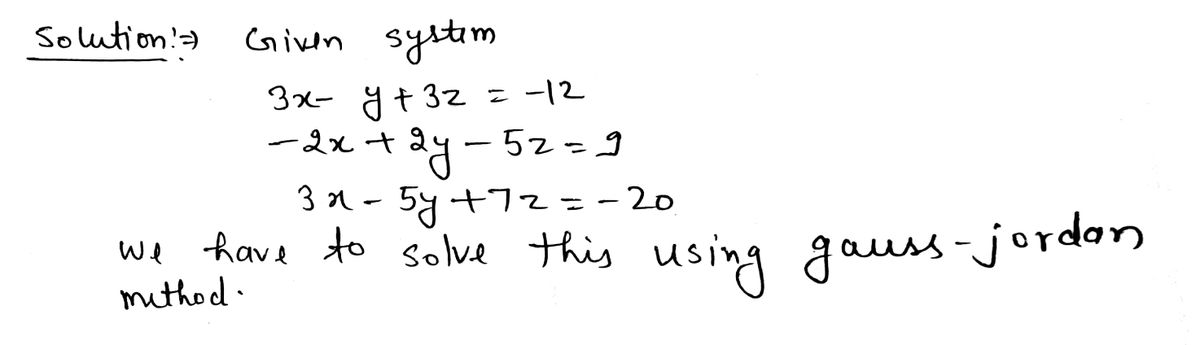 Solution:⇒ Given system
3x- y + 3z = -12
-2x + 2y - 5z = 9
3x - 5y + 7z = -20
we have to solve this using gauss-jordan
method.